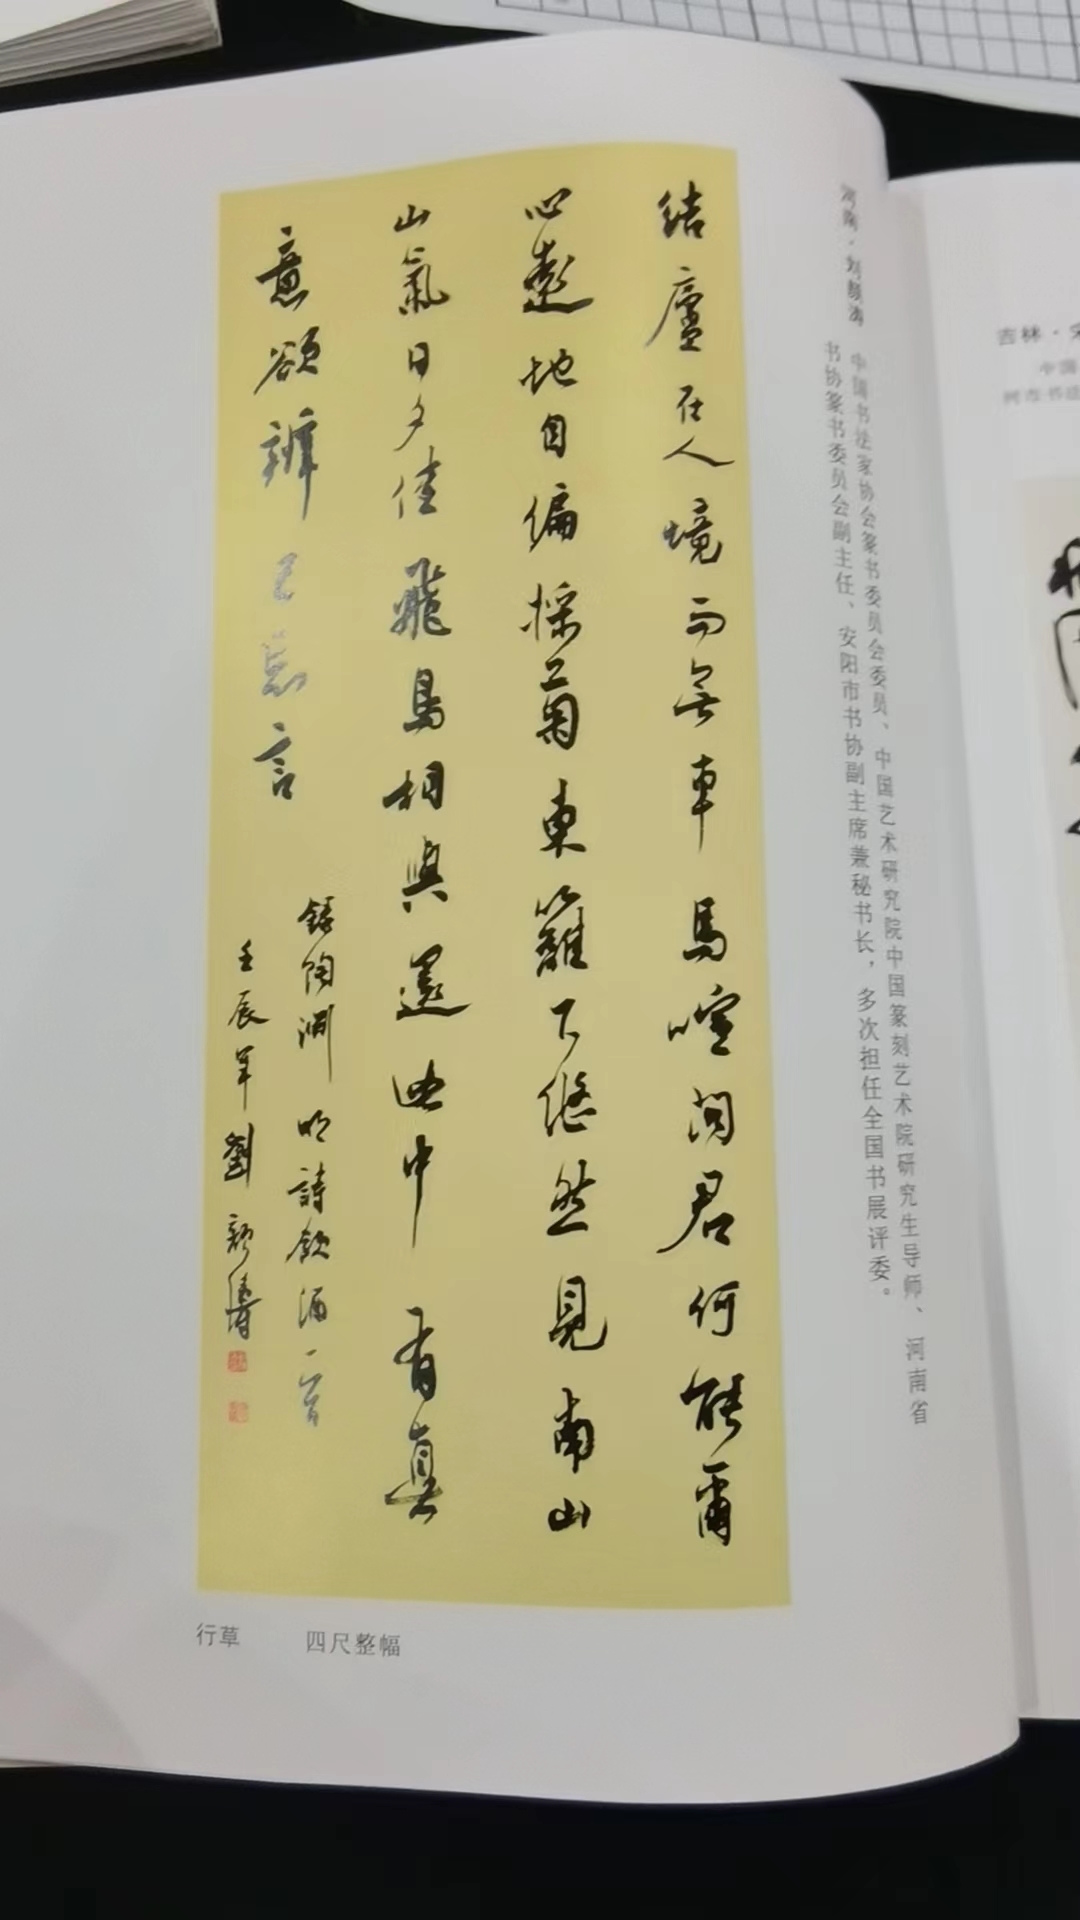 河南·刘颜涛
中国书法家协会篆书委员会委员、中国艺术研究院中国篆刻艺术院研究生导师、河南省
书协篆书委员会副主任、安阳市书协副主席兼秘书长，多次担任全国书展评委。
結廬在人境而無車馬喧問君何能爾
心遠地自偏採菊東籬下悠然見南山
山氣日夕佳飛鳥相與還此中有真
意欲辨已忘言
錄陶淵明詩飲酒一首
壬辰年劉顏濤
行草 四尺整幅
吉林·宋
中国